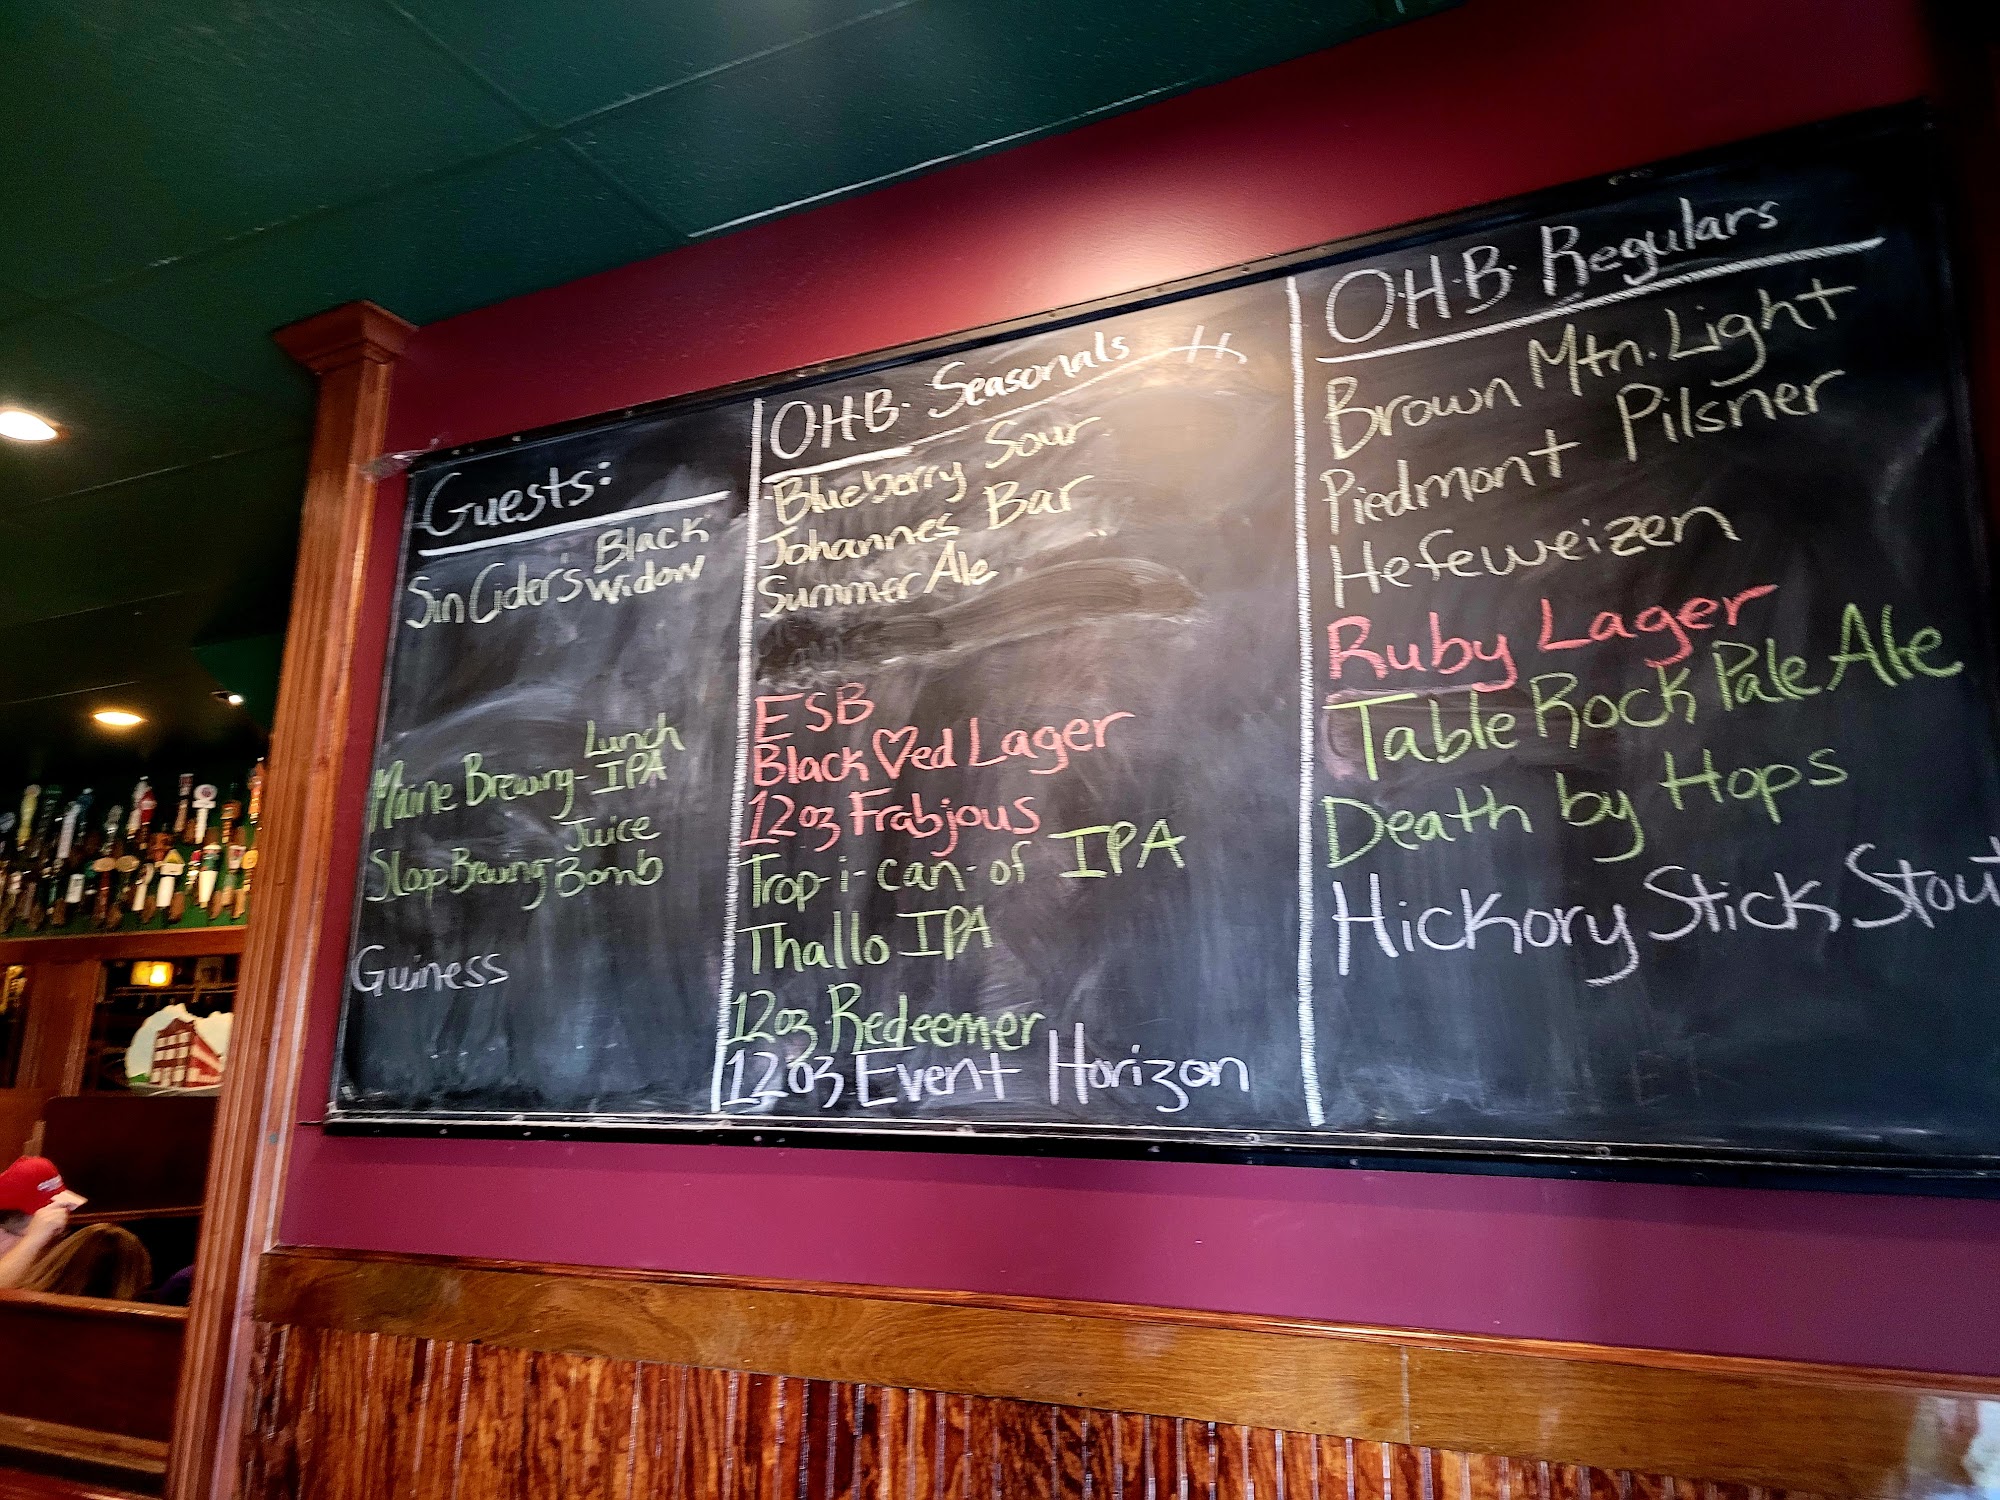 Guests:
Sin Cider's Black
Widow
Maine Brewing- Lunch
IPA
Sloop Brewing Juice
Bomb
Guiness
O.H.B. Seasonals
Blueberry Sour
Johannes Bar
Summer Ale
ESB
Black ♡ed Lager
12oz Frabjous
Trop-i-can-of IPA
Thallo IPA
12oz Redeemer
12oz Event Horizon
O.H.B. Regulars
Brown Mtn. Light
Piedmont Pilsner
Hefeweizen
Ruby Lager
Table Rock Pale Ale
Death by Hops
Hickory Stick Stout